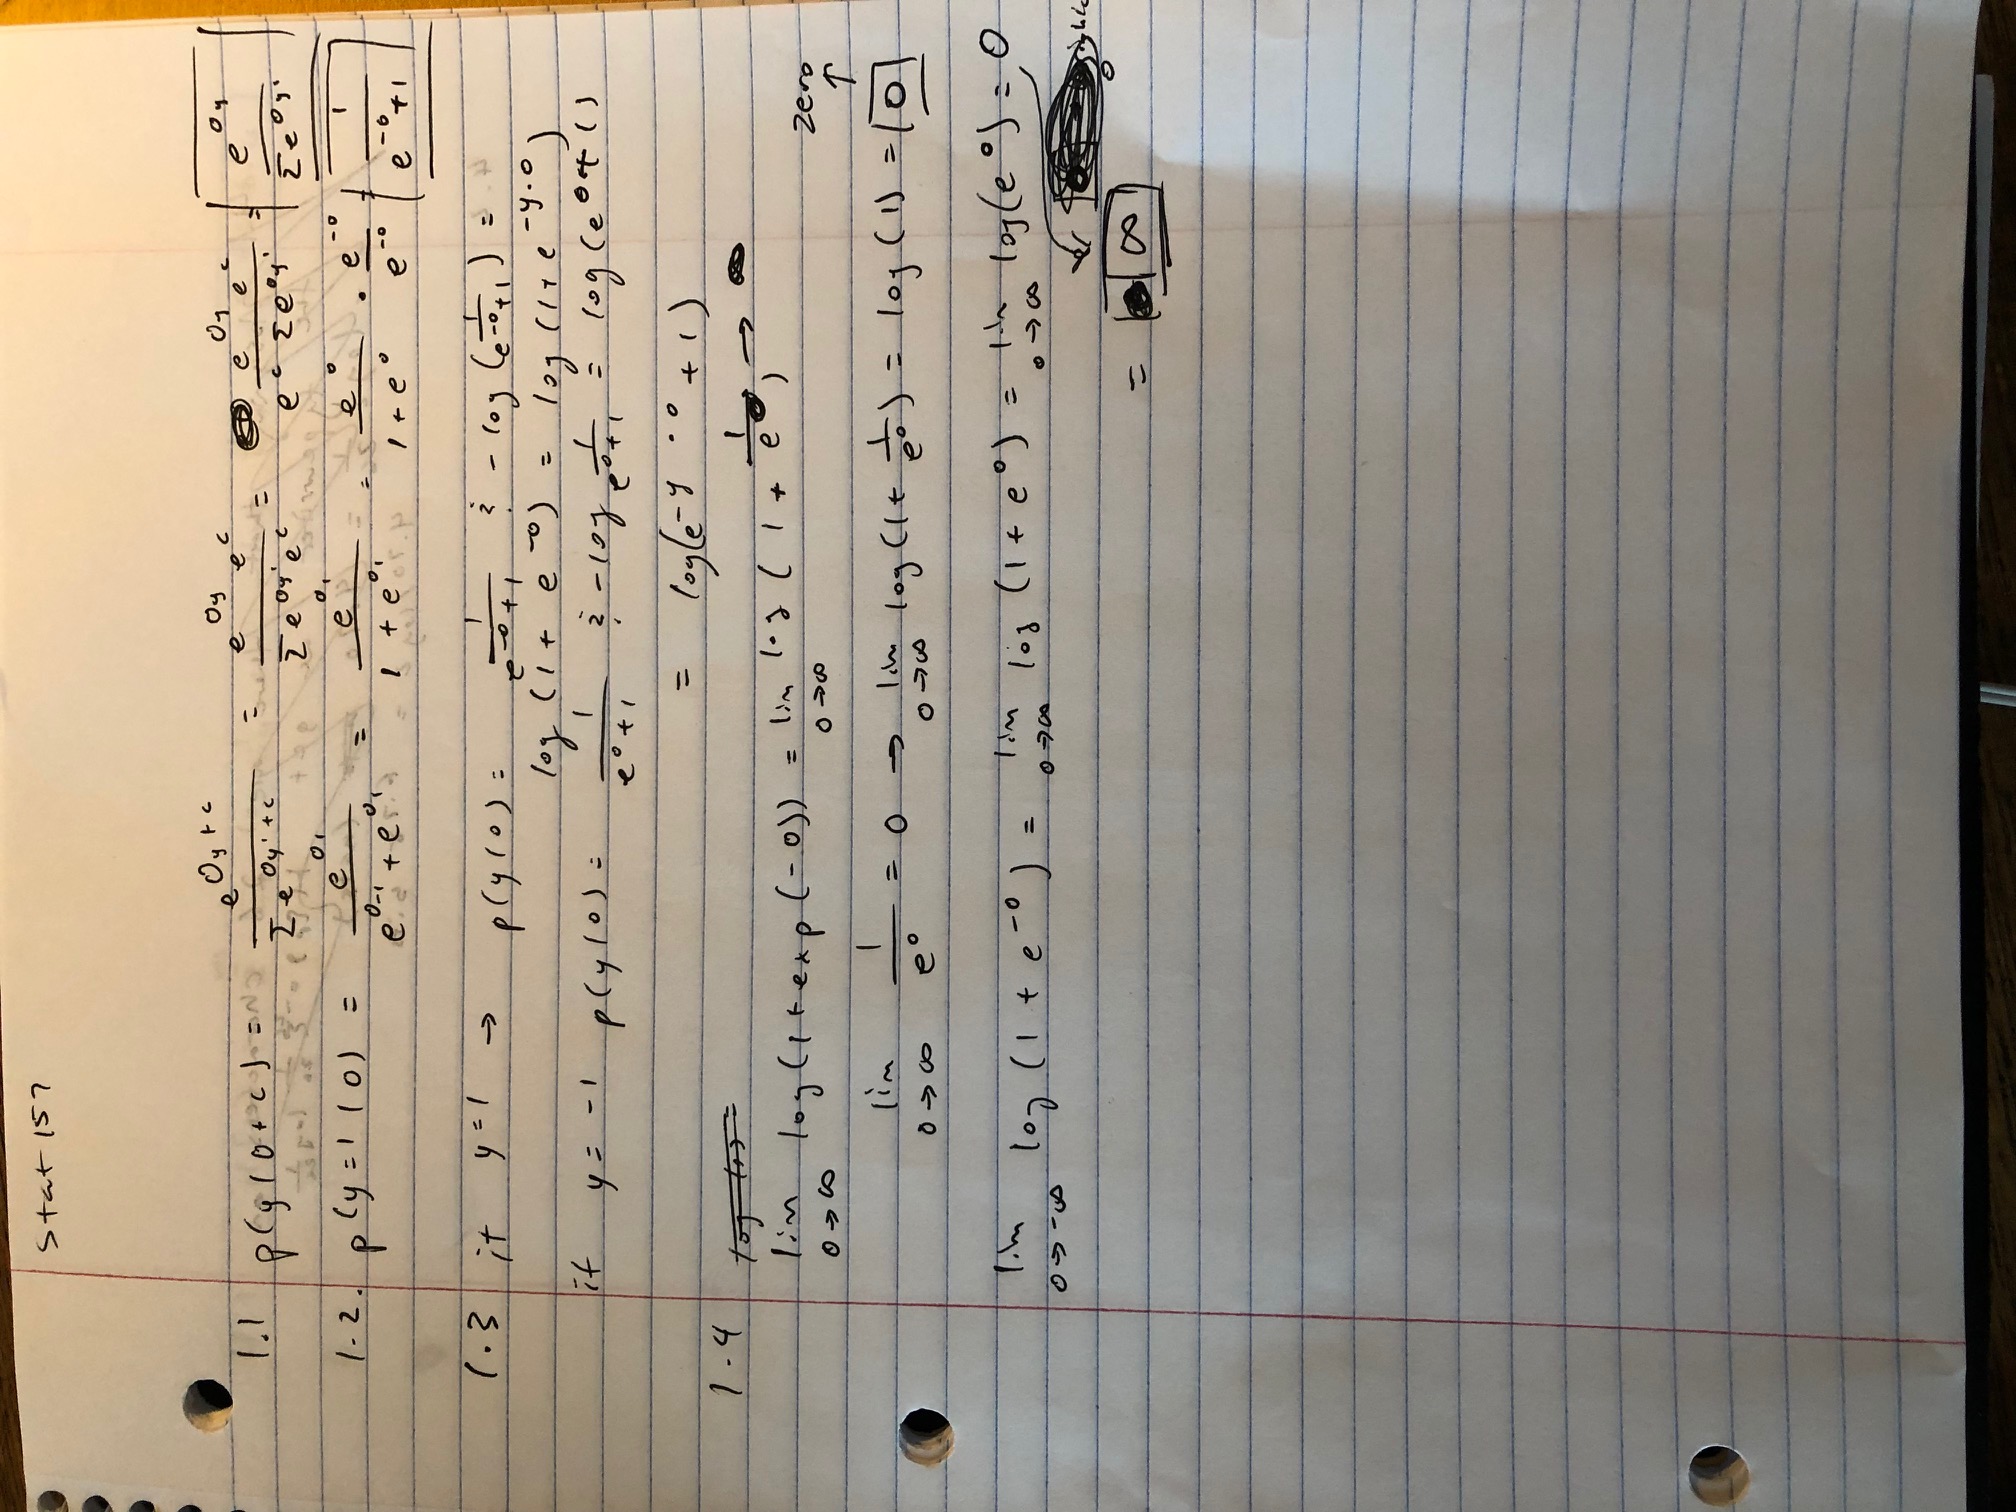 Stat 157
1.1 p(y|O+c) = e^{O_y+c} / Σe^{O_{y'}+c} = e^{O_y} e^c / Σe^{O_{y'}} e^c = e^{O_y} e^c / e^c Σe^{O_{y'}} = e^{O_y} / Σe^{O_{y'}}
1.2. p(y=1|O) = e^{O_1} / e^{O_{-1}} + e^{O_1} = e^{O_1} / 1 + e^{O_1} = e^O / 1+e^O · e^{-O} / e^{-O} = 1 / e^{-O}+1
1.3 if y=1 → p(y|O) = 1 / e^{-O}+1 ; -log(1 / e^{-O}+1) =
log(1 + e^{-O}) = log(1+e^{-y·O})
if y=-1 p(y|O) = 1 / e^O+1 ; -log 1 / e^O+1 = log(e^O+1)
= log(e^{-y·O} + 1)
1.4
lim O→∞ log(1+exp(-O)) = lim O→∞ log(1 + 1 / e^O) →
zero
↑
lim O→∞ 1 / e^O = 0 → lim O→∞ log(1+ 1 / e^O) = log(1) = 0
lim O→-∞ log(1 + e^{-O}) = lim O→∞ log(1+e^O) = lim O→∞ log(e^O) = O
= ∞